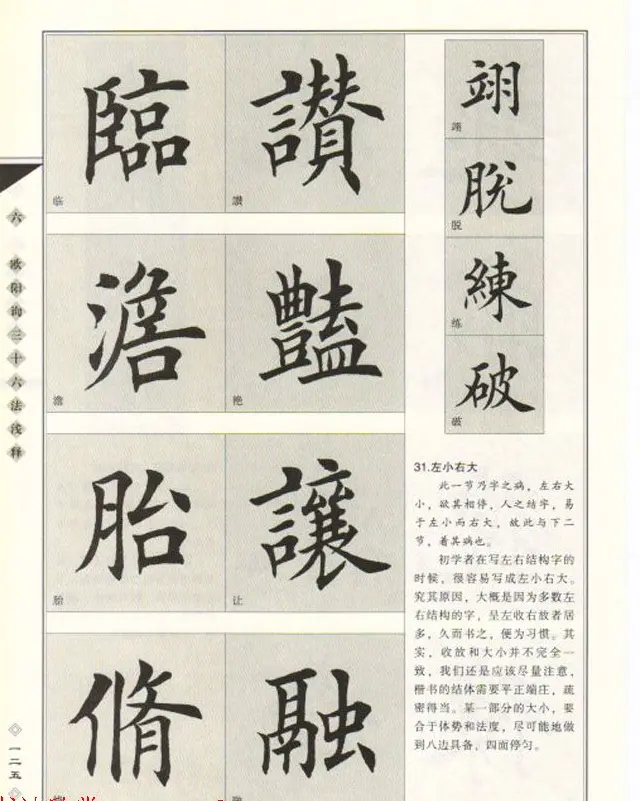 六
欧阳询三十六法浅释
一二五
臨
临
讚
讚
澹
澹
豔
艳
胎
胎
讓
让
脩
融
翊
翊
脱
脱
練
练
破
破
31.左小右大
此一节乃字之病，左右大
小，欲其相停，人之结字，易
于左小而右大，故此与下二
节，着其病也。
初学者在写左右结构字的
时候，很容易写成左小右大。
究其原因，大概是因为多数左
右结构的字，呈左收右放者居
多，久而书之，便为习惯。其
实，收放和大小并不完全一
致，我们还是应该尽量注意，
楷书的结体需要平正端庄，疏
密得当。某一部分的大小，要
合于体势和法度，尽可能地做
到八边具备，四面停匀。